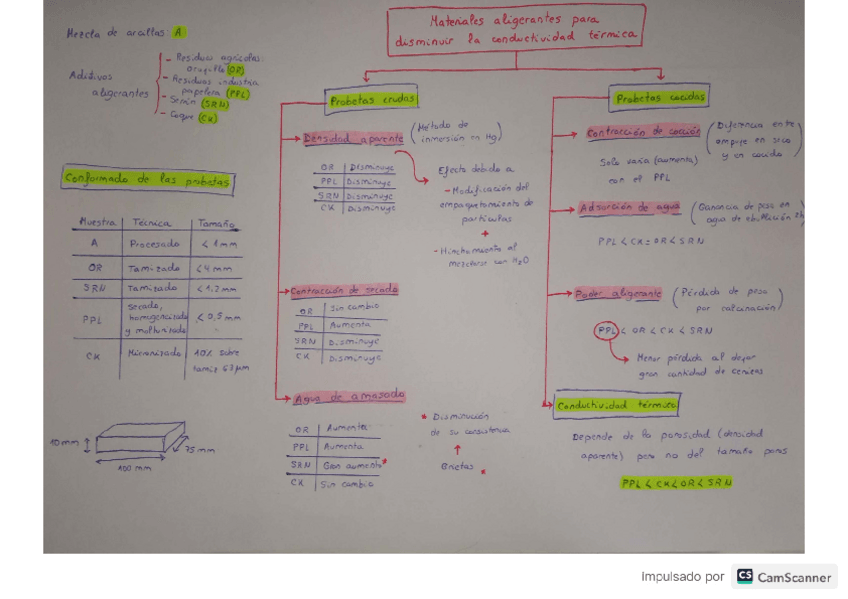 Materiales aligerantes para
disminuir la conductividad térmica
Mezcla de arcillas: A
Aditivos
aligerantes
- Residuos agrícolas:
orujillo (OR)
- Residuos industria
papelera (PPL)
- Serrín (SRN)
- Coque (CK)
Conformado de las probetas
Muestra | Técnica | Tamaño
A | Procesado | < 1mm
OR | Tamizado | < 4mm
SRN | Tamizado | < 1,2mm
PPL | Secado, homogenizado y molturizado | < 0,5 mm
CK | Micronizado | 10% sobre tamiz 63 µm
10 mm
75 mm
100 mm
Probetas crudas
Densidad aparente (Método de
inmersión en Hg)
OR | Disminuye
PPL | Disminuye
SRN | Disminuye
CK | Disminuye
Efecto debido a
- Modificación del
empaquetamiento de
partículas
+
- Hinchamiento al
mezclarse con H2O
Contracción de secado
OR | Sin cambio
PPL | Aumenta
SRN | Disminuye
CK | Disminuye
Agua de amasado
OR | Aumenta
PPL | Aumenta
SRN | Gran aumento*
CK | Sin cambio
* Disminución
de su consistencia
↑
Grietas *
Probetas cocidas
Contracción de cocción (Diferencia entre
empuje en seco
y en cocido)
Solo varía (aumenta)
con el PPL
Adsorción de agua (Ganancia de peso en
agua de ebullición 2h
PPL < CK = OR < SRN
Poder aligerante (Pérdida de peso
por calcinación)
PPL < OR < CK < SRN
Menor pérdida al dejar
gran cantidad de cenizas
Conductividad térmica
Depende de la porosidad (densidad
aparente) pero no del tamaño poros
PPL < CK < OR < SRN
Impulsado por CS CamScanner